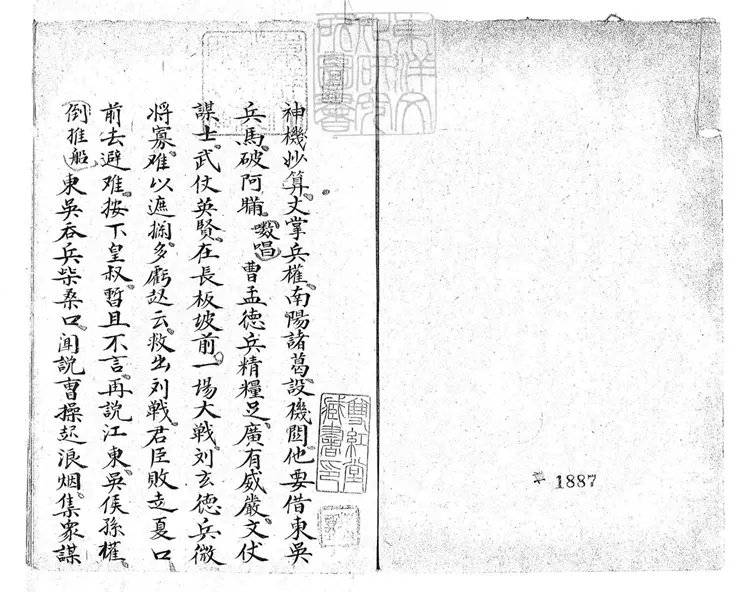 1887
東洋文
化研究
所圖書
神機妙算。丈掌兵權。南陽諸葛設機関。他要借東吳
兵馬。破阿瞞。數唱曹孟德兵精糧足。廣有威嚴。文仗
謀士。武仗英賢。在長板坡前。一場大戰。刘玄德兵微
將寡。难以遮攔。多虧赵云。救出刘戰。君臣敗走夏口
前去避难。按下皇叔。暫且不言。再說江東。吳侯孫權。
倒推船。東吳吞兵柴桑口。聞説曹操起浪烟。集衆謀
雙紅堂
藏書印